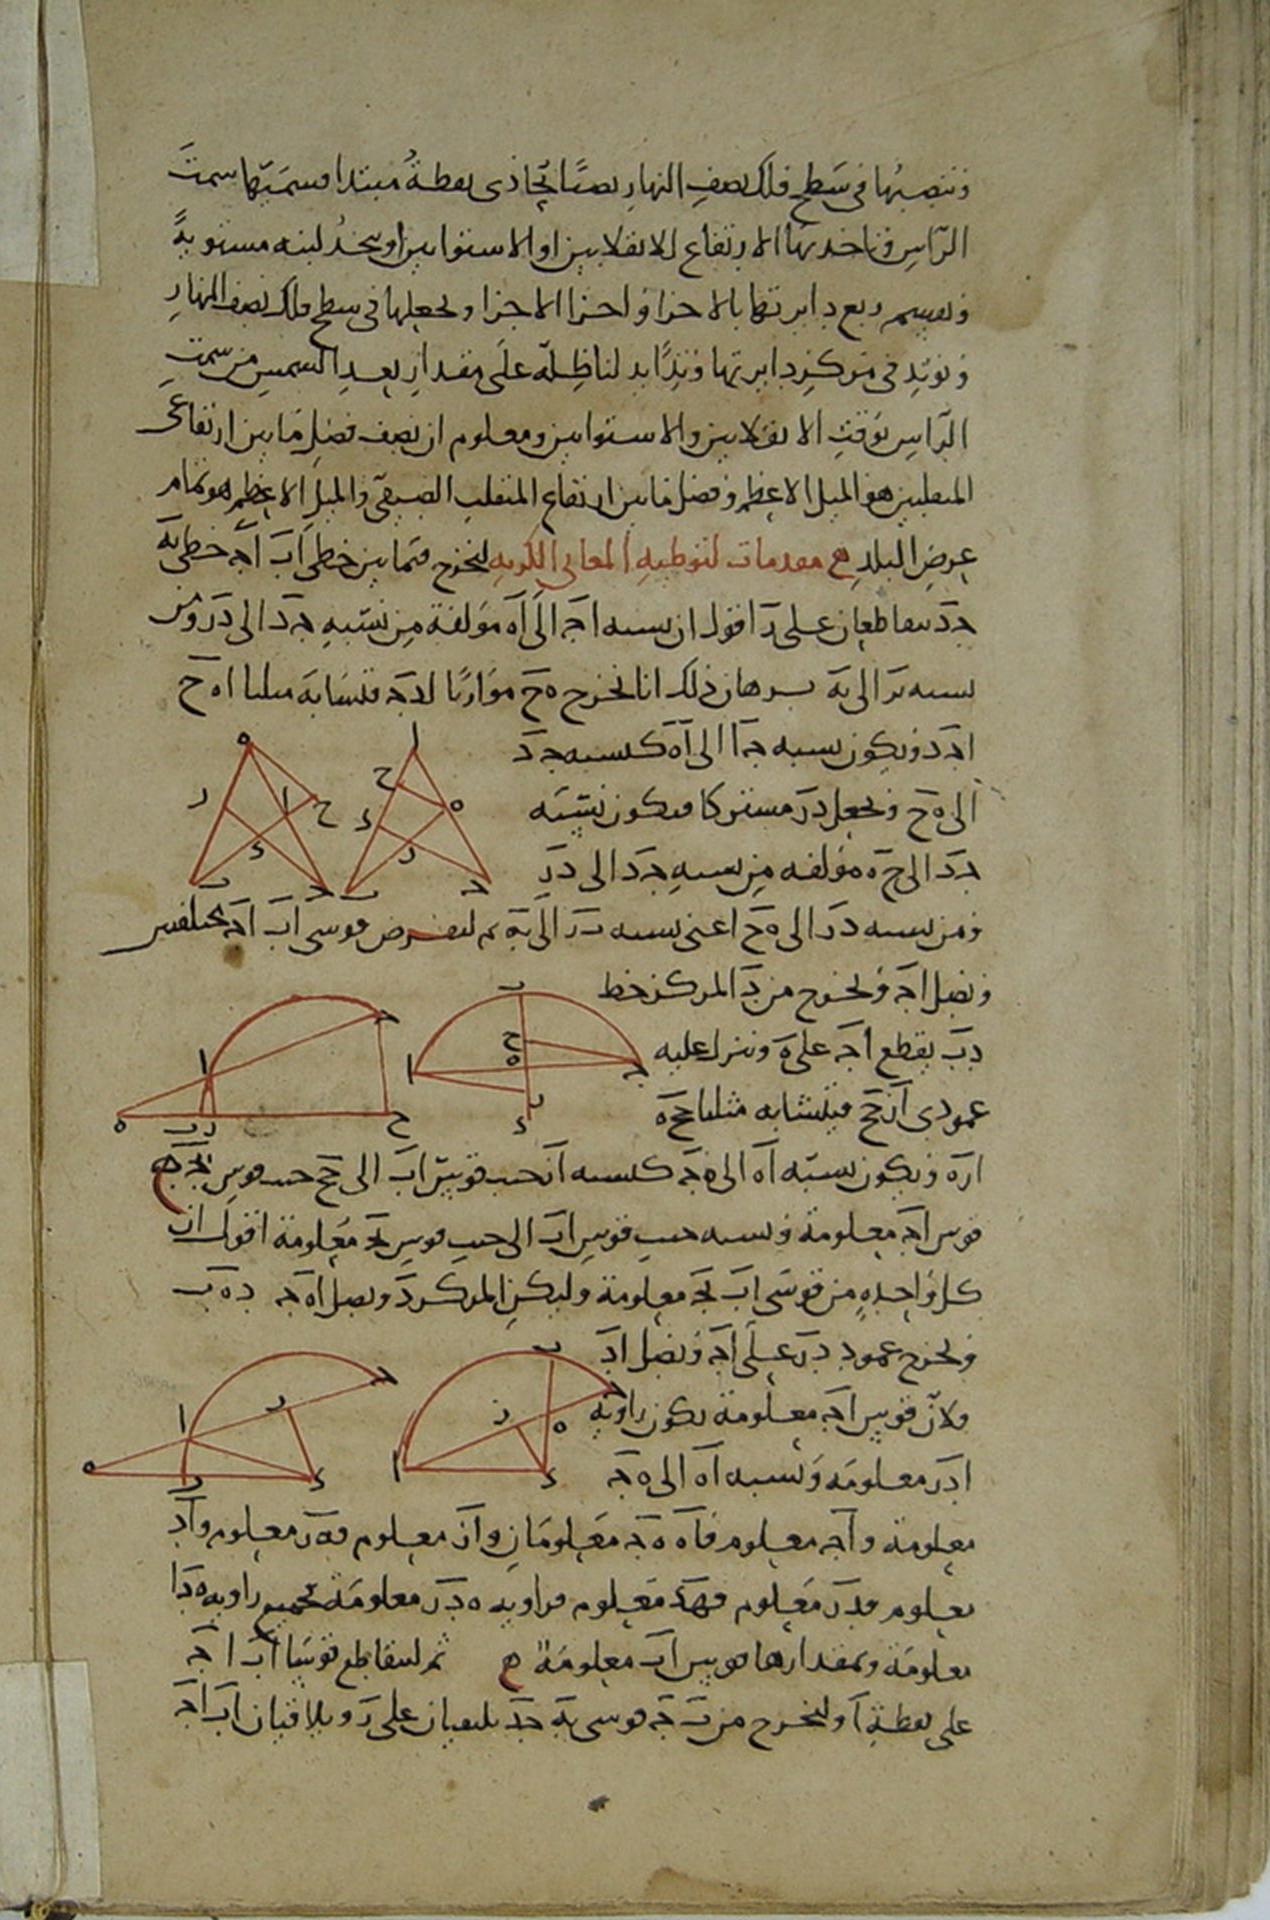 وننصبها في سطح فلك نصف النهار نصبًا تحاذي نقطةُ مبتدا قسمتها سمتَ
الرّاسِ فناخذ بها الارتفاع للانقلابين او الاستوايين او نتخذُ لبنه مستويةً
ونقسم ربع دايرتها بالاجزا واجزا الاجزا ونجعلها في سطح فلك نصف النهارِ
ونوتد في مركزِ دايرتها وتدًا يدلنا ظِلّه على مقدارِ بعدِ الشمسِ من سمتِ
الرّاسِ بوقتِ الانقلابين والاستوايين ومعلوم ان نصف فضل ما بين ارتفاعي
المنقلبين هو الميل الاعظم وفضل ما بين ارتفاع المنقلب الصيفي والميل الاعظم هو تمام
عرض البلد ه مقدمات لتوطيه المعاني الكريه ليخرج فيما بين خطي اب اج خطي به
جد متقاطعان على ز اقول ان نسبه اج الى اه مولفة من نسبهِ جد الى دز ومن
نسبه بز الى به برهان ذلك انا نخرج ه ح موازيًا لدج فلتشابه مثلثا ا ه ح
اجد ويكون نسبه جا الى اه كنسبه جد
الى ه ح ونجعل دز مشتركا فيكون نسبته
جد الى ح ه مولفه من نسبهِ جد الى دز
ومن نسبه دز الى ه ح اعني نسبه بز الى به ثم لنفرض قوسي اب اج مختلفين
ونصل اج ونخرج من د المركز خط
دب يقطع اج على ه وننزل عليه
عمودي از جح فيتشابه مثلثا جح ه
از ه ويكون نسبته اه الى ه ج كنسبه از جيب قوس اب الى جح جيب قوس بج ه
قوس اج معلومة ونسبه جيب قوس اب الى جيب قوس بج معلومة اقول ان
كل واحدهٍ من قوسي اب بج معلومة وليكن المركز د ونصل اه ج ده ب
ونخرج عمود دز على اج ونصل اد
ولان قوس اج معلومة يكون زاويه
ادز معلومه ونسبه اه الى ه ج
معلومة واج معلوم فاه ه ج معلومان واز معلوم فه ز معلوم واد
معلوم فدز معلوم فه د معلوم فزاويه ه دز معلومة فجميع زاويه ه دا
معلومه وبمقدارها قوس اب معلومة ه ثم لتقاطع قوسا اب اج
على نقطةِ ا ولنخرج من ب ج قوسي به جد يلتقيان على ز ويلاقيان اب اج
ه ا ح ر د ب ج
ا ح ه د ر ب ج
ج ا ه ب ر ح
ب ح ه ا ج ر د
ج ر ا ه ب د
ب ج ه ر ا د